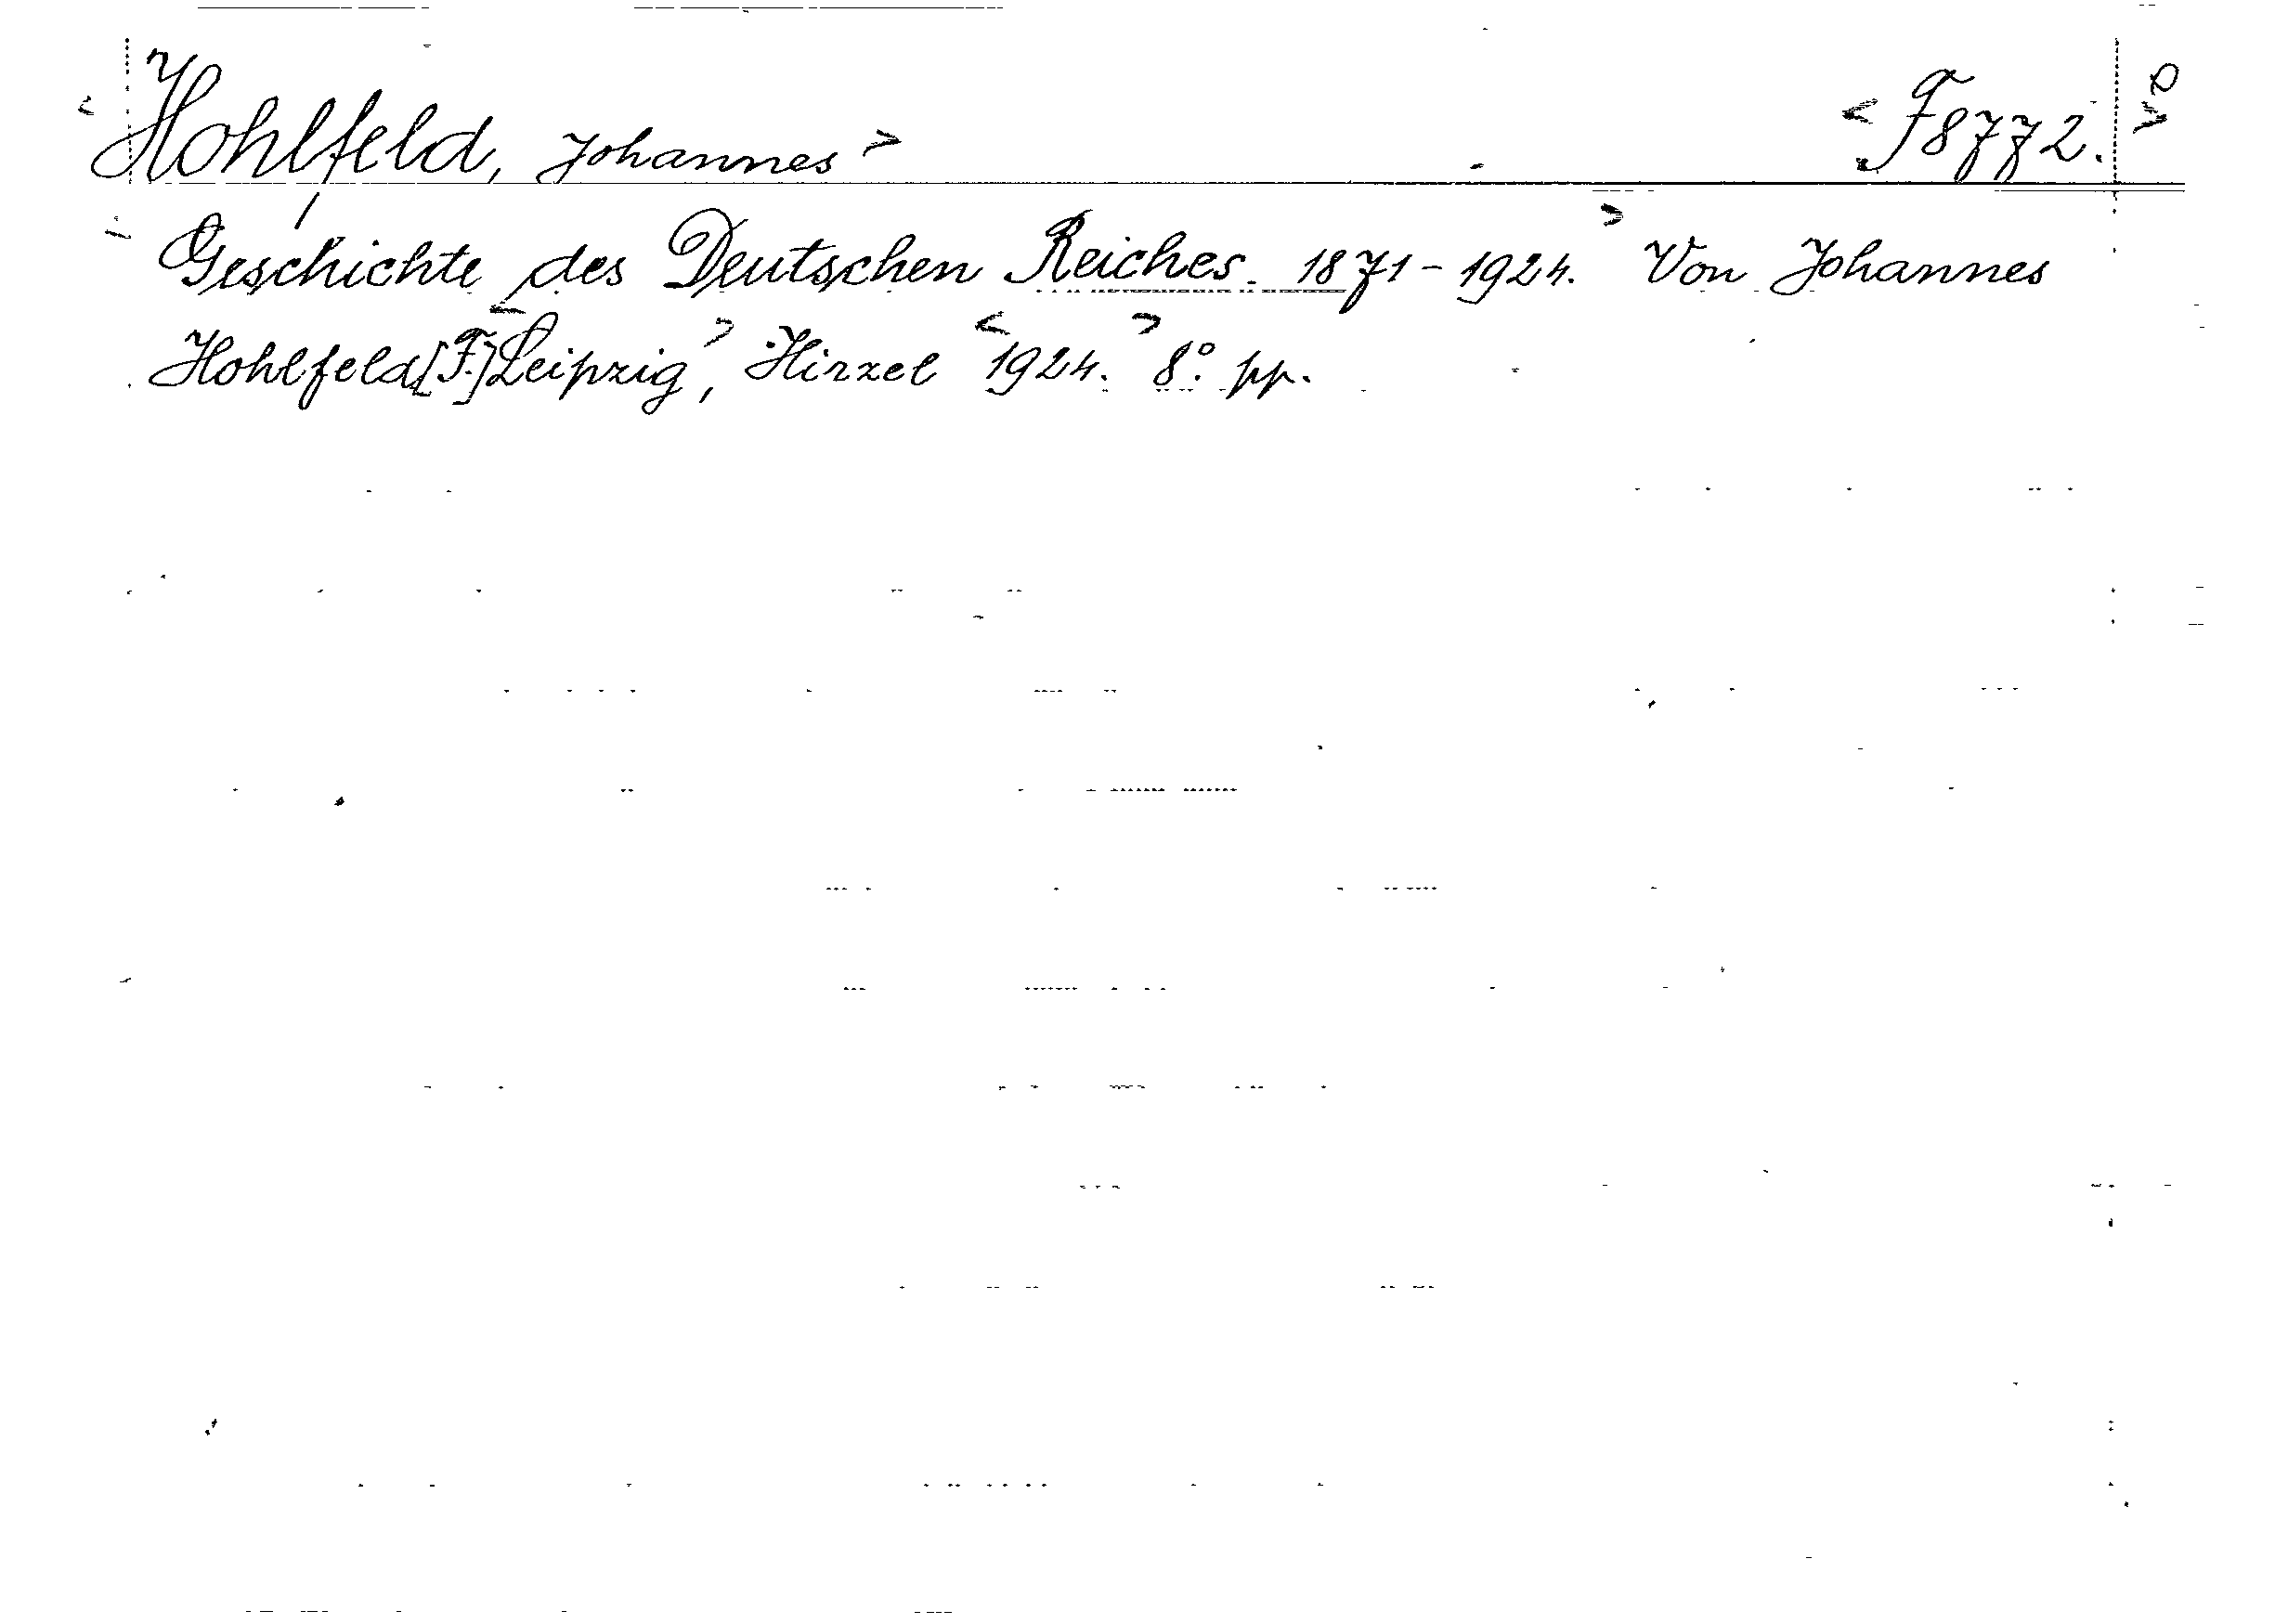 <Hohlfeld, Johannes> <F8772.>
Geschichte des Deutschen Reiches 1871-1924.> Von Johannes
Hohlfeld [F.] <Leipzig>, Hirzel <1924.> 8° pp.